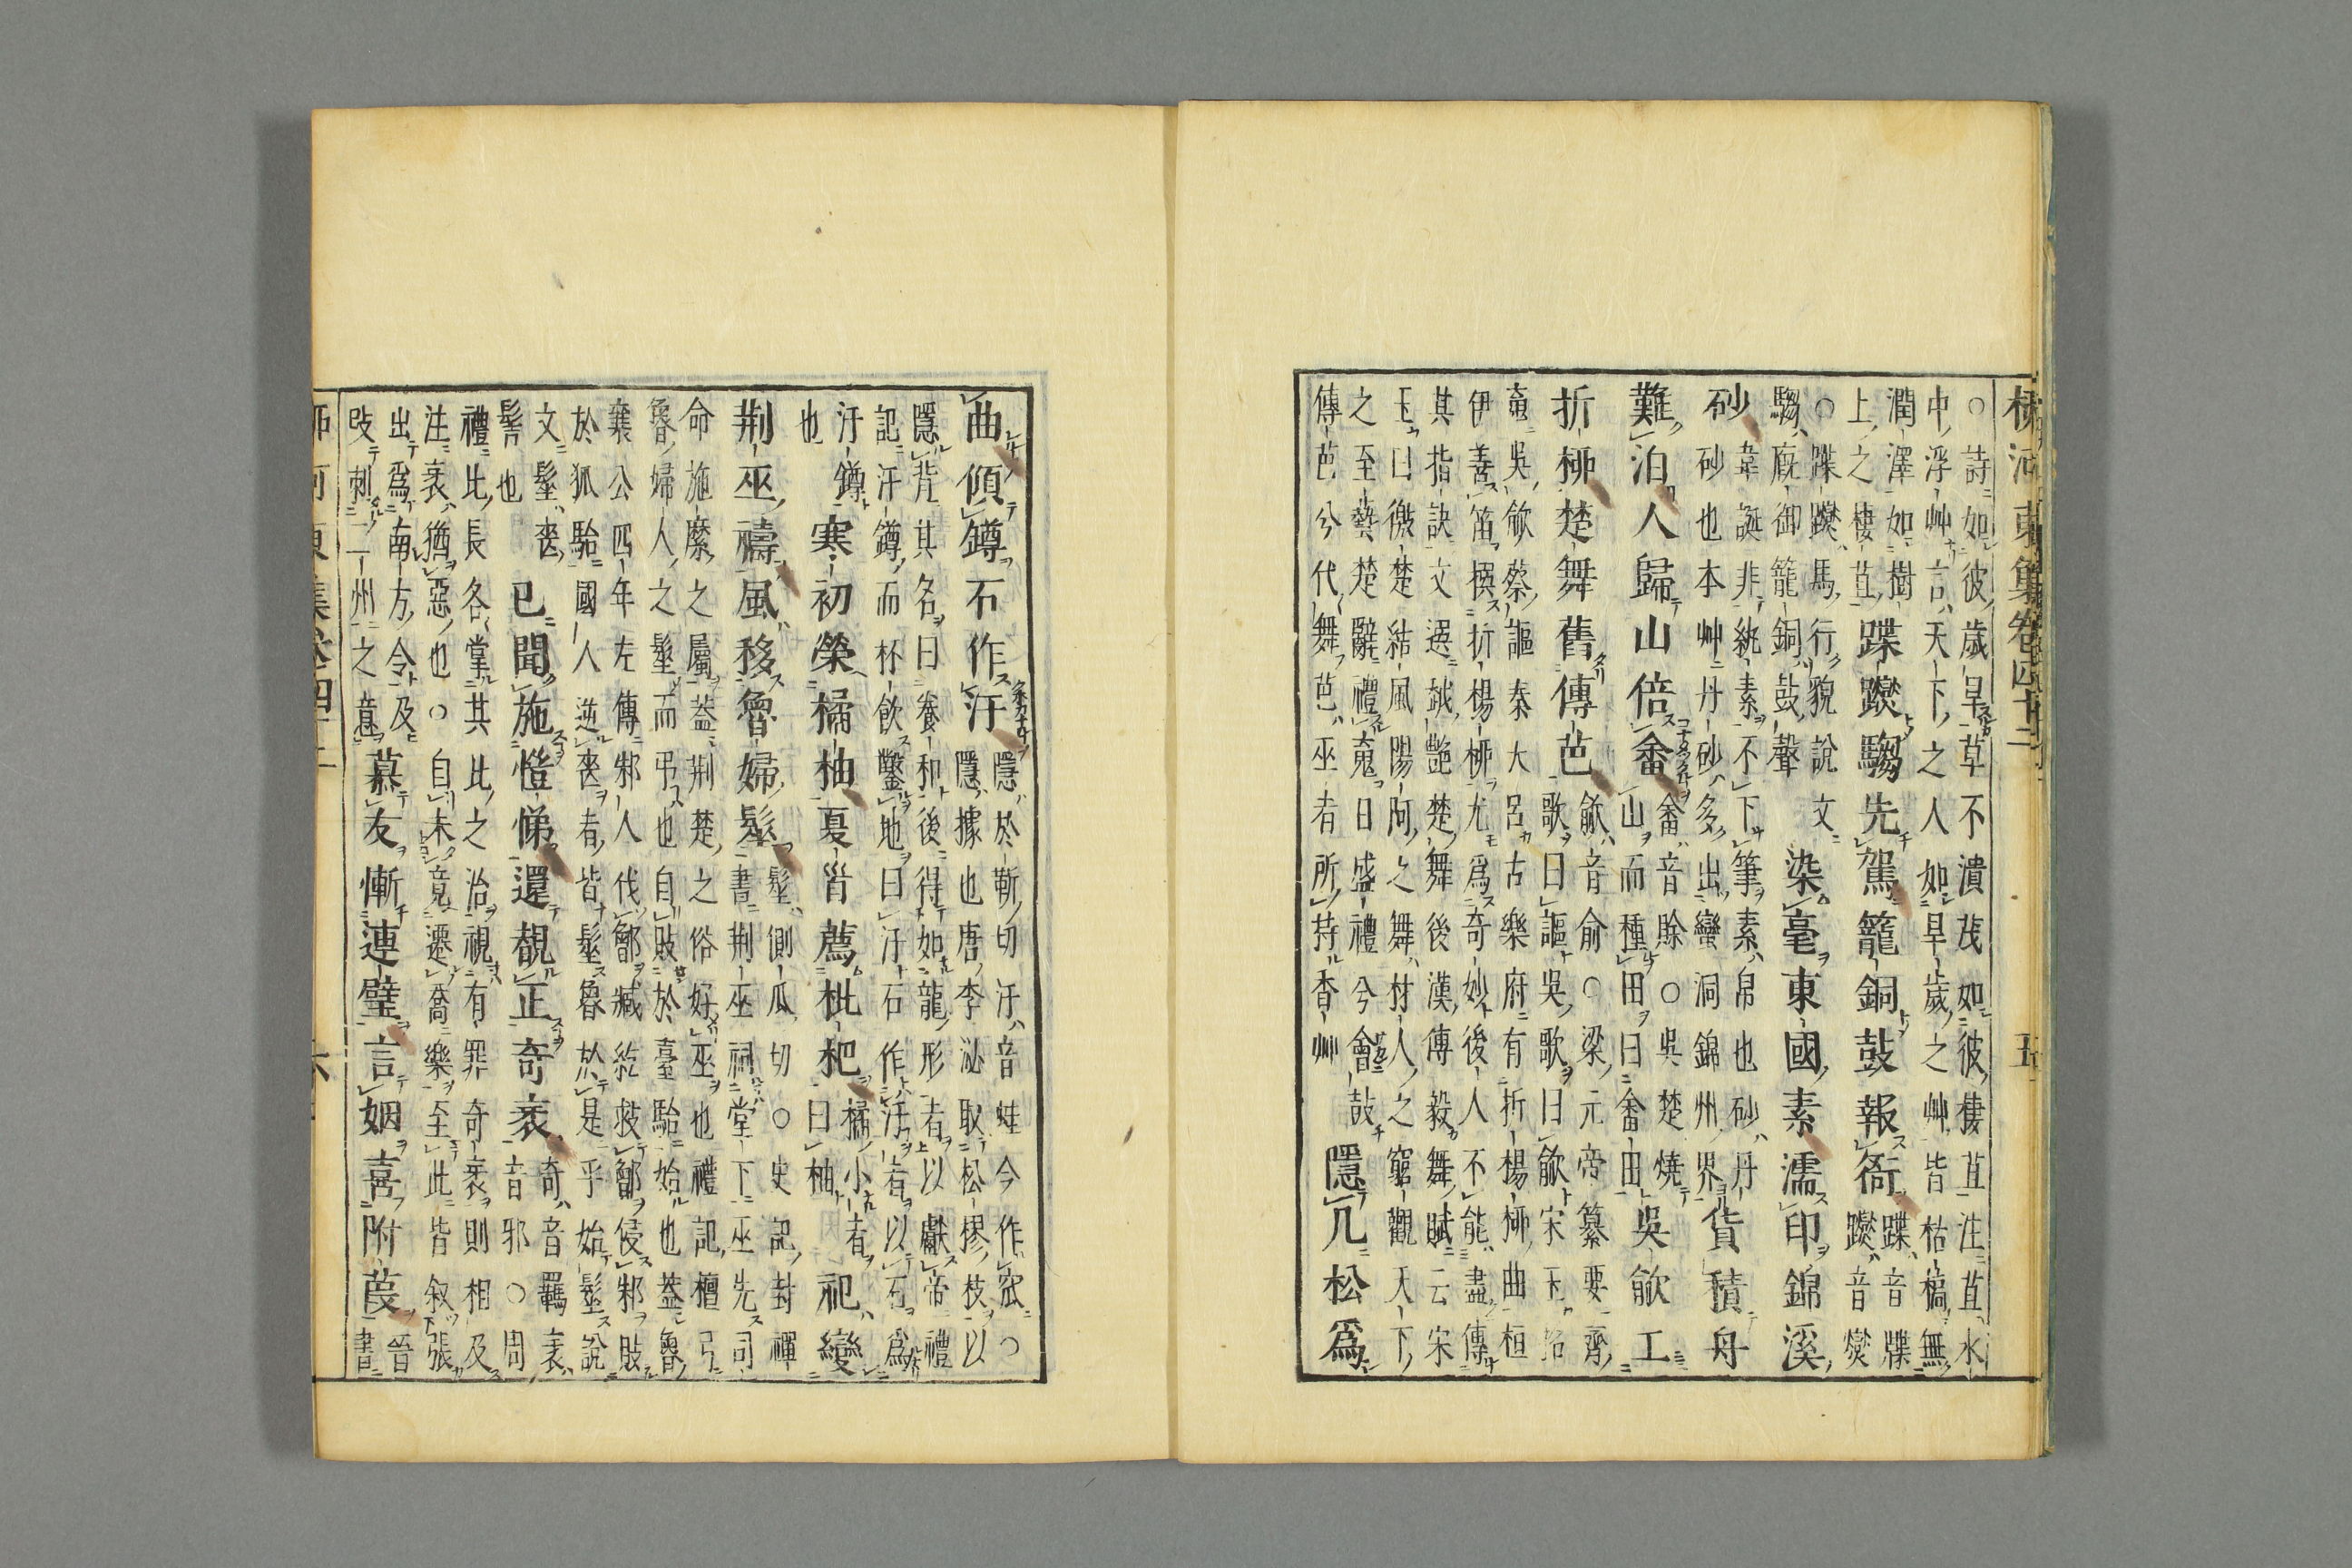 柳河東集卷四十二 五
○詩如彼歲旱草不潰茂如彼棲苴注苴水
中浮艸言天下之人如旱歲之艸皆枯槁無
潤澤如樹
上之棲苴
蹀躞騶先駕籠銅鼓報衙
蹀音牒
躞音燮
○蹀躞馬行貌說文
騶廐御籠銅鼓聲
染毫東國素濡印錦溪
砂
韋誕非紈素不下筆素帛也砂丹
砂也本艸丹砂多出蠻洞錦州界
貨積舟
難泊人歸山倍畬
畬音賖○吳楚燒
山而種田曰畬田
吳歈工
折柳楚舞舊傳芭
歈音俞○梁元帝纂要齊
歌曰謳吳歌曰歈宋玉招
䰟吳歈蔡謳奏大呂古樂府有折楊柳曲桓
伊善笛撰折楊柳尤爲奇妙後人不能盡傳
其指訣文選越艷楚舞後漢傳毅舞賦云宋
玉曰徼楚結風陽阿之舞材人之窮觀天下
之至藝楚辭禮䰟曰盛禮兮會鼓
傳芭兮代舞芭巫者所持香艸
隱几松爲
曲傾罇石作汙
隱於靳切汙音蛙今作窊○
隱據也唐李泌取松樛枝以
隱背其名曰養和後得如龍形者以獻帝禮
記汙罇而杯飲鑿地曰汙石作汙者以石爲
汙罇
也
寒初榮橘柚夏首薦枇杷
橘小
曰柚
者
祀變
荆巫禱風移魯婦髽
髽側瓜切○史記封禪
書荆巫祠堂下巫先司
命施糜之屬葢荆楚之俗好巫也禮記檀弓
魯婦人之髽而弔也自敗於臺駘始也葢魯
襄公四年左傳邾人伐鄫臧紇救鄫侵邾敗
於狐駘國人逆喪者皆髽魯於是乎始髽說
文髽喪
髻也
已聞施愷悌還覩正奇衺
奇音羈衺
音邪○周
禮比長各掌其比之治視有罪奇衺則相及
注衺猶惡也○自未竟遷喬樂至此皆叙張
出爲南方令及
㱾刺二州之意
慕友慚連璧言姻喜附葭
晉
書
柳河東集卷四十二 六